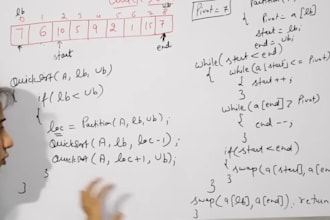 lb
0 1 2 3 4 5 6 7 8
7 6 10 5 9 2 1 15 7
start
end
QuickSort (A, lb, ub)
{
if (lb < ub)
{
loc = Partition (A, lb, ub);
QuickSort (A, lb, loc-1);
QuickSort (A, loc+1, ub);
}
}
Pivot = 7
{
Pivot = a[lb]
start = lb;
end = ub;
while (start < end)
{
while (a[start] <= Pivot)
{
start++;
}
while (a[end] > Pivot)
{
end--;
}
if (start < end)
{
swap (a[start], a[en
}
}
swap (a[lb], a[end]), return
}